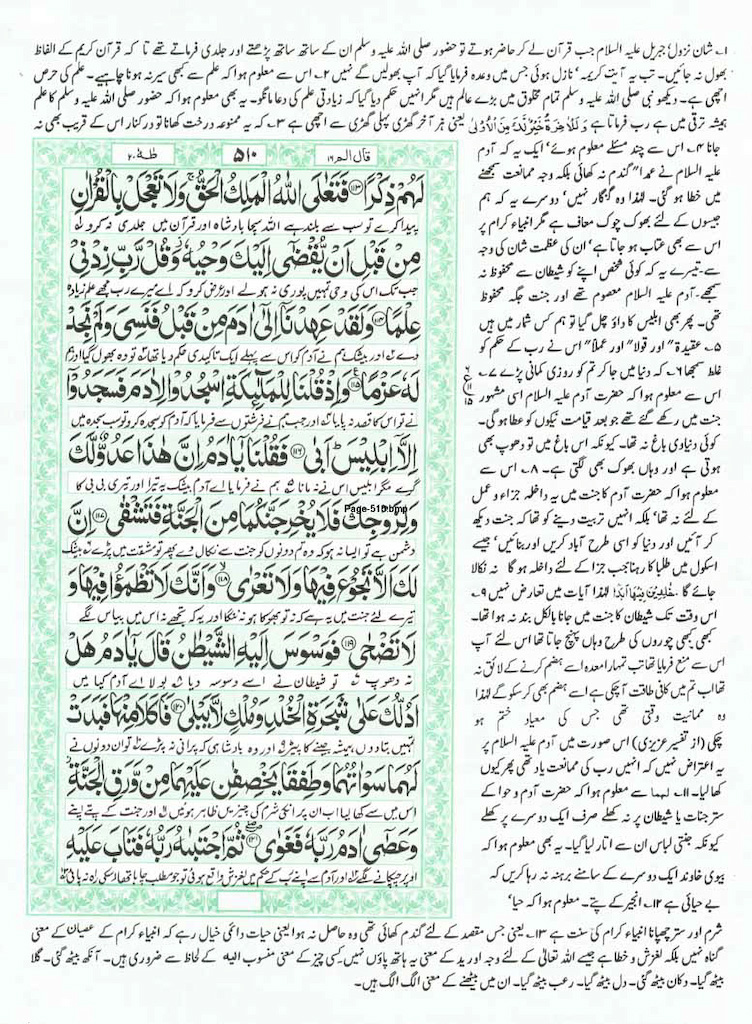 ۱۔ شان نزول؛ جبریل علیہ السلام جب قرآن لے کر حاضر ہوتے تو حضور صلی اللہ علیہ وسلم ان کے ساتھ ساتھ پڑھتے اور جلدی فرماتے تھے تا کہ قرآن کریم کے الفاظ
بھول نہ جائیں۔ تب یہ آیت کریمہ نازل ہوئی جس میں وعدہ فرمایا گیا کہ آپ بھولیں گے نہیں ۲۔ اس سے معلوم ہوا کہ علم سے کبھی سیر نہ ہونا چاہیے۔ علم کی حرص
اچھی ہے۔ دیکھو نبی صلی اللہ علیہ وسلم تمام مخلوق میں بڑے عالم ہیں مگر انہیں حکم دیا گیا کہ زیادتی علم کی دعا مانگو۔ یہ بھی معلوم ہوا کہ حضور صلی اللہ علیہ وسلم کا علم
ہمیشہ ترقی میں ہے رب فرماتا ہے وَلَلْاٰخِرَةُ خَیْرٌ لَّكَ مِنَ الْاُوْلٰی یعنی ہر آخر گھڑی پہلی گھڑی سے اچھی ہے ۳۔ کہ یہ ممنوعہ درخت کھانا تو درکنار اس کے قریب بھی نہ
جانا ۴۔ اس سے چند مسئلے معلوم ہوئے ایک یہ کہ آدم
علیہ السلام نے عمدا" گندم نہ کھائی بلکہ وجہ ممانعت سمجھنے
میں خطا ہو گئی۔ لہٰذا وہ گنہگار نہیں' دوسرے یہ کہ ہم
جیسوں کے لئے بھوک چوک معاف ہے مگر انبیاء کرام پر
اس سے بھی عتاب ہو جاتا ہے' ان کی عظمت شان کی وجہ
سے۔ تیسرے یہ کہ کوئی شخص اپنے کو شیطان سے محفوظ نہ
سمجھے۔ آدم علیہ السلام معصوم تھے اور جنت جگہ محفوظ
تھی۔ پھر بھی ابلیس کا داؤ چل گیا تو ہم کس شمار میں ہیں
۵۔ عقیدۃ" اور قولا" اور عملاً" اس نے رب کے حکم کو
غلط سمجھا ۶۔ کہ دنیا میں جا کر تم کو روزی کمانی پڑے ۷۔
اس سے معلوم ہوا کہ حضرت آدم علیہ السلام اسی مشہور
جنت میں رکھے گئے تھے جو بعد قیامت نیکوں کو عطا ہو گی۔
کوئی دنیاوی باغ نہ تھا۔ کیونکہ اس باغ میں تو دھوپ بھی
ہوتی ہے اور وہاں بھوک بھی لگتی ہے۔ ۸۔ اس سے
معلوم ہوا کہ حضرت آدم کا جنت میں یہ داخلہ جزاء و عمل
کے لئے نہ تھا' بلکہ انہیں تربیت دینے کو تھا کہ جنت دیکھ
کر آئیں اور دنیا کو اسی طرح آباد کریں اور بنائیں' جیسے
اسکول میں طلبا کا رہنا جب جزا کے لئے داخلہ ہو گا نہ نکالا
جائے گا خٰلِدِیْنَ فِیْهَاۤ اَبَدًا لہٰذا آیات میں تعارض نہیں ۹۔
اس وقت تک شیطان کا جنت میں جانا بالکل بند نہ ہوا تھا۔
کبھی کبھی چوروں کی طرح وہاں پہنچ جاتا تھا اس لئے آپ
اس سے منع فرمایا تھا تب تمہارا معدہ اسے ہضم کرنے کے لائق نہ
تھا اب تم میں کافی طاقت آ چکی ہے اسے ہضم بھی کر سکو گے لہٰذا
وہ ممانیت وقتی تھی جس کی معیاد ختم ہو
چکی (از تفسیر عزیزی) اس صورت میں آدم علیہ السلام پر
یہ اعتراض نہیں کہ انہیں رب کی ممانعت یاد تھی پھر کیوں
کھا لیا۔ ۱۱۔ لھما سے معلوم ہوا کہ حضرت آدم و حوا کے
ستر جنات یا شیطان پر نہ کھلے صرف ایک دوسرے پر کھلے
کیونکہ جنتی لباس ان سے اتار لیا گیا۔ یہ بھی معلوم ہوا کہ
بیوی خاوند ایک دوسرے کے سامنے برہنہ نہ رہا کریں کہ
بے حیائی ہے ۱۲۔ انجیر کے پتے۔ معلوم ہوا کہ حیا'
ع
قال الم ۱۶
۵۱۰
طٰهٰ ۲۰
لَهُمْ ذِكْرًا ﴿۱۱۳﴾ فَتَعٰلَى اللّٰهُ الْمَلِكُ الْحَقُّ ۚ وَلَا تَعْجَلْ بِالْقُرْاٰنِ
پیدا کرے تو سب سے بلند ہے اللہ سچا بادشاہ اور قرآن میں جلدی نہ کرو
مِنْ قَبْلِ اَنْ یُّقْضٰۤى اِلَیْكَ وَحْیُهٗ ؗ وَقُلْ رَّبِّ زِدْنِیْ
جب تک اس کی وحی تمہیں پوری نہ ہو لے اور عرض کرو کہ اے میرے رب مجھے علم زیادہ
عِلْمًا ﴿۱۱۴﴾ وَلَقَدْ عَهِدْنَاۤ اِلٰۤى اٰدَمَ مِنْ قَبْلُ فَنَسِیَ وَلَمْ نَجِدْ
دے اور بیشک ہم نے آدم کو اس سے پہلے ایک تاکیدی حکم دیا تھا تو وہ بھول گیا اور ہم
لَهٗ عَزْمًا ﴿۱۱۵﴾ وَاِذْ قُلْنَا لِلْمَلٰٓىِٕكَةِ اسْجُدُوْا لِاٰدَمَ فَسَجَدُوْۤا
نے تو اس کا قصد نہ پایا اور جب ہم نے فرشتوں سے فرمایا کہ آدم کو سجدہ کرو تو سب سجدہ میں
اِلَّاۤ اِبْلِیْسَ ؕ اَبٰى ﴿۱۱۶﴾ فَقُلْنَا یٰۤاٰدَمُ اِنَّ هٰذَا عَدُوٌّ لَّكَ
گرے مگر ابلیس اس نے نہ مانا تو ہم نے فرمایا اے آدم بیشک یہ تیرا اور تیری بی بی کا
وَلِزَوْجِكَ فَلَا یُخْرِجَنَّكُمَا مِنَ الْجَنَّةِ فَتَشْقٰى ﴿۱۱۷﴾ اِنَّ
Page-510.bmp
دشمن ہے تو ایسا نہ ہو کہ وہ تم دونوں کو جنت سے نکال دے پھر تو مشقت میں پڑے بیشک
لَكَ اَلَّا تَجُوْعَ فِیْهَا وَلَا تَعْرٰى ﴿۱۱۸﴾ وَاَنَّكَ لَا تَظْمَؤُا فِیْهَا وَ
تیرے لئے جنت میں یہ ہے کہ نہ تو بھوکا ہو نہ ننگا اور یہ کہ تجھے نہ اس میں پیاس لگے
لَا تَضْحٰى ﴿۱۱۹﴾ فَوَسْوَسَ اِلَیْهِ الشَّیْطٰنُ قَالَ یٰۤاٰدَمُ هَلْ
نہ دھوپ تو شیطان نے اسے وسوسہ دیا بولا اے آدم کیا میں
اَدُلُّكَ عَلٰى شَجَرَةِ الْخُلْدِ وَمُلْكٍ لَّا یَبْلٰى ﴿۱۲۰﴾ فَاَكَلَا مِنْهَا فَبَدَتْ
تمہیں بتا دوں ہمیشہ جینے کا پیڑ اور وہ بادشاہی کہ پرانی نہ پڑے تو ان دونوں نے
لَهُمَا سَوْاٰتُهُمَا وَطَفِقَا یَخْصِفٰنِ عَلَیْهِمَا مِنْ وَّرَقِ الْجَنَّةِ ؗ
اس میں سے کھا لیا اب ان پر انکی شرم کی چیزیں ظاہر ہوئیں اور جنت کے پتے اپنے
وَعَصٰۤى اٰدَمُ رَبَّهٗ فَغَوٰى ﴿۱۲۱﴾ ثُمَّ اجْتَبٰىهُ رَبُّهٗ فَتَابَ عَلَیْهِ
اوپر چپکانے لگے اور آدم سے اپنے رب کے حکم میں لغزش واقع ہوئی تو جو مطلب چاہا تھا اسکی راہ نہ پائی
شرم اور ستر چھپانا انبیاء کرام کی سنت ہے ۱۳۔ یعنی جس مقصد کے لئے گندم کھائی تھی وہ حاصل نہ ہوا یعنی حیات دائمی خیال رہے کہ انبیاء کرام کے عصیان کے معنی
گناہ نہیں بلکہ لغزش و خطا ہے جیسے اللہ تعالیٰ کے لئے وجہ اور ید کے معنی یہ ہاتھ پاؤں نہیں کسی چیز کے معنی منسوب الیہ کے لحاظ سے ضروری ہیں۔ آنکھ بیٹھ گئی۔ گلا
بیٹھ گیا۔ دکان بیٹھ گئی۔ دل بیٹھ گیا۔ رعب بیٹھ گیا۔ ان میں بیٹھنے کے معنی الگ الگ ہیں۔